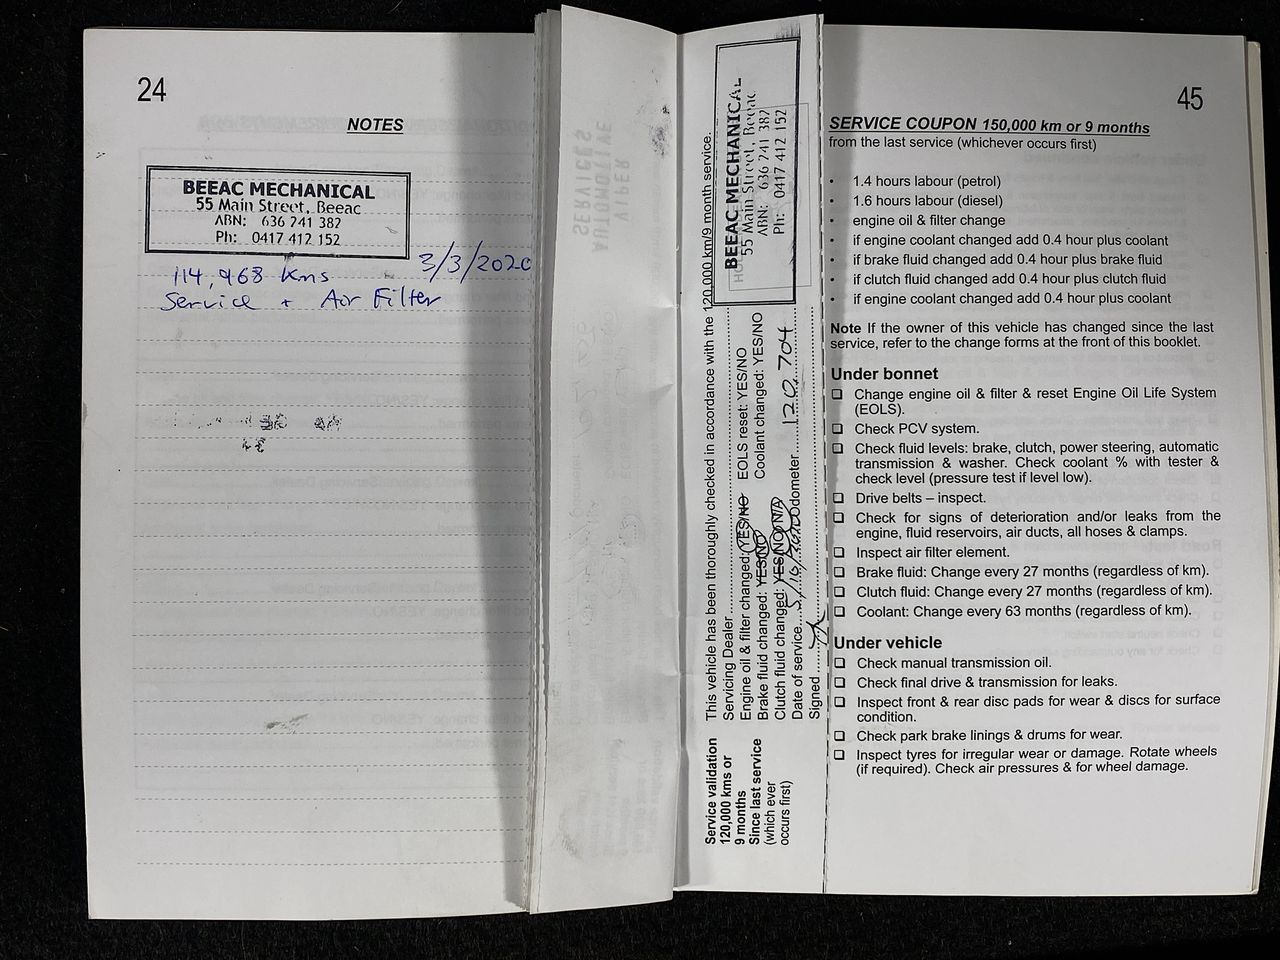 24
NOTES
BEEAC MECHANICAL
55 Main Street, Beeac
ABN: 636 741 382
Ph: 0417 412 152
3/3/2020
114,968 kms
Service + Air Filter
SERVICES
AUTOMOTIVE
VIPER
This vehicle has been thoroughly checked in accordance with the 120,000 km/9 month service.
Servicing Dealer
Engine oil & filter changed: YES/NO EOLS reset: YES/NO
Brake fluid changed: YES/NO Coolant changed: YES/NO
Clutch fluid changed: YES/NO N/A
Date of service Odometer 120,704
Signed
BEEAC MECHANICAL
55 Main Street, Beeac
ABN: 636 741 382
Ph: 0417 412 152
Service validation
120,000 kms or
9 months
Since last service
(which ever
occurs first)
45
SERVICE COUPON 150,000 km or 9 months
from the last service (whichever occurs first)
• 1.4 hours labour (petrol)
• 1.6 hours labour (diesel)
• engine oil & filter change
• if engine coolant changed add 0.4 hour plus coolant
• if brake fluid changed add 0.4 hour plus brake fluid
• if clutch fluid changed add 0.4 hour plus clutch fluid
• if engine coolant changed add 0.4 hour plus coolant
Note If the owner of this vehicle has changed since the last
service, refer to the change forms at the front of this booklet.
Under bonnet
❑ Change engine oil & filter & reset Engine Oil Life System
(EOLS).
❑ Check PCV system.
❑ Check fluid levels: brake, clutch, power steering, automatic
transmission & washer. Check coolant % with tester &
check level (pressure test if level low).
❑ Drive belts – inspect.
❑ Check for signs of deterioration and/or leaks from the
engine, fluid reservoirs, air ducts, all hoses & clamps.
❑ Inspect air filter element.
❑ Brake fluid: Change every 27 months (regardless of km).
❑ Clutch fluid: Change every 27 months (regardless of km).
❑ Coolant: Change every 63 months (regardless of km).
Under vehicle
❑ Check manual transmission oil.
❑ Check final drive & transmission for leaks.
❑ Inspect front & rear disc pads for wear & discs for surface
condition.
❑ Check park brake linings & drums for wear.
❑ Inspect tyres for irregular wear or damage. Rotate wheels
(if required). Check air pressures & for wheel damage.